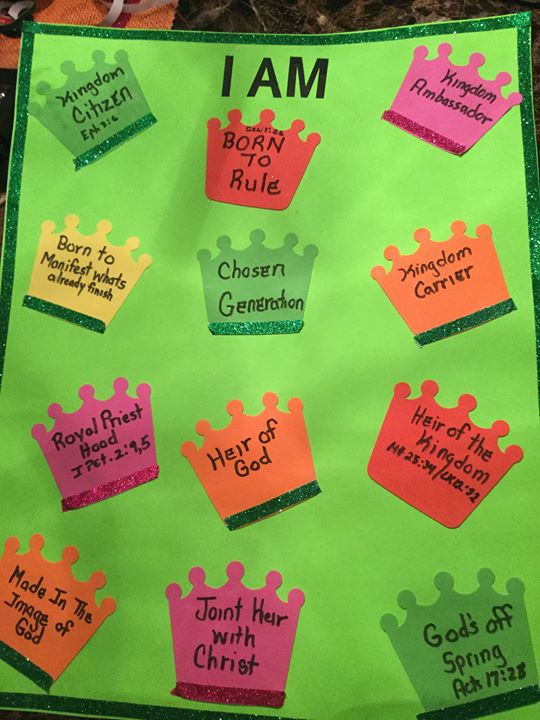 I AM
Kingdom
Citizen
Eph 2:6
Gen 1:26
BORN
TO
Rule
Kingdom
Ambassador
Born to
Manifest whats
already finish
Chosen
Generation
Kingdom
Carrier
Royal Priest
Hood
I Pet. 2:9,5
Heir of
God
Heir of the
Kingdom
Mt 25:34/LK12:32
Made In The
Image of
God
Joint Heir
with
Christ
God's off
Spring
Act 17:28